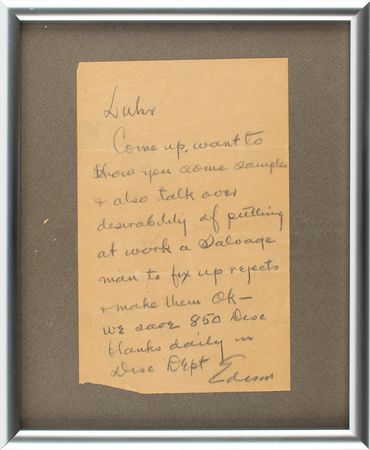 Duhr
Come up, want to
show you some samples
& also talk over
desirability of putting
at work a Salvage
man to fix up rejects
& make them OK—
we save 850 Disc
blanks daily in
Disc Dept Edison